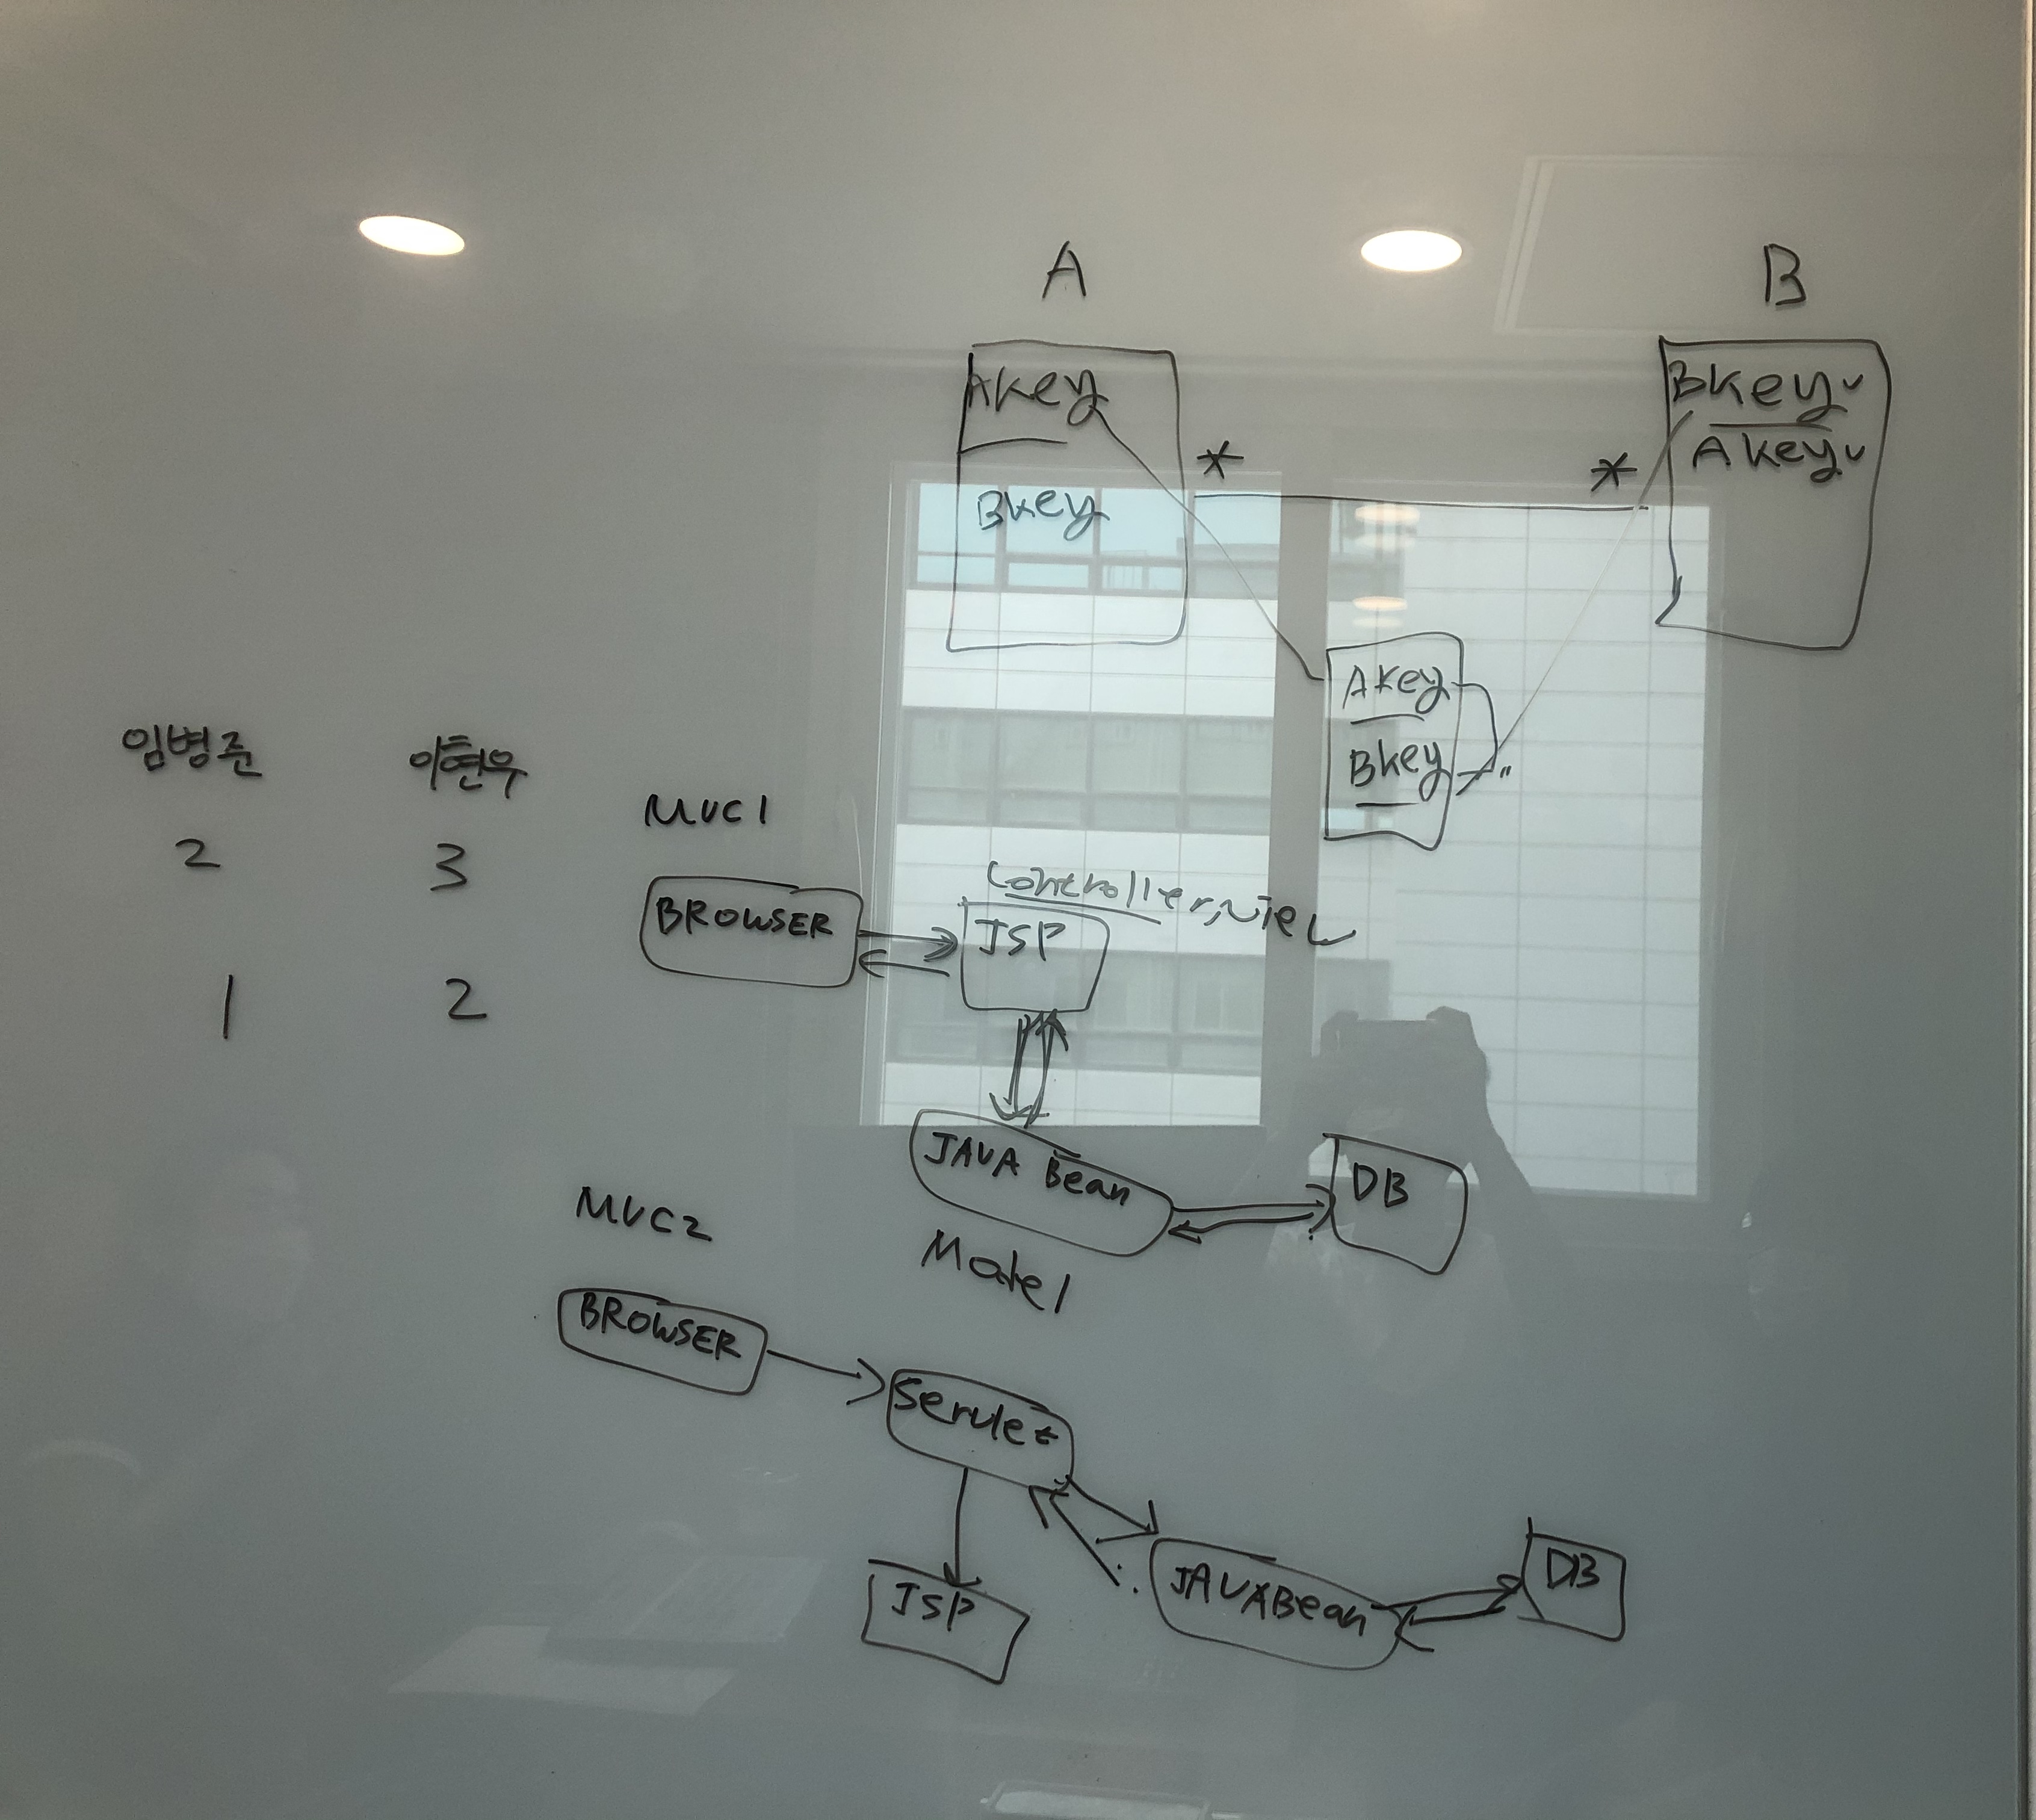 A
B
Akey
Bkey
Bkey
Akey
*
*
Akey
Bkey
임병준 이현우
2 3
1 2
MVC1
Controller, View
BROWSER
JSP
JAVA Bean
DB
Model
MVC2
BROWSER
Servlet
JSP
JAVABean
DB